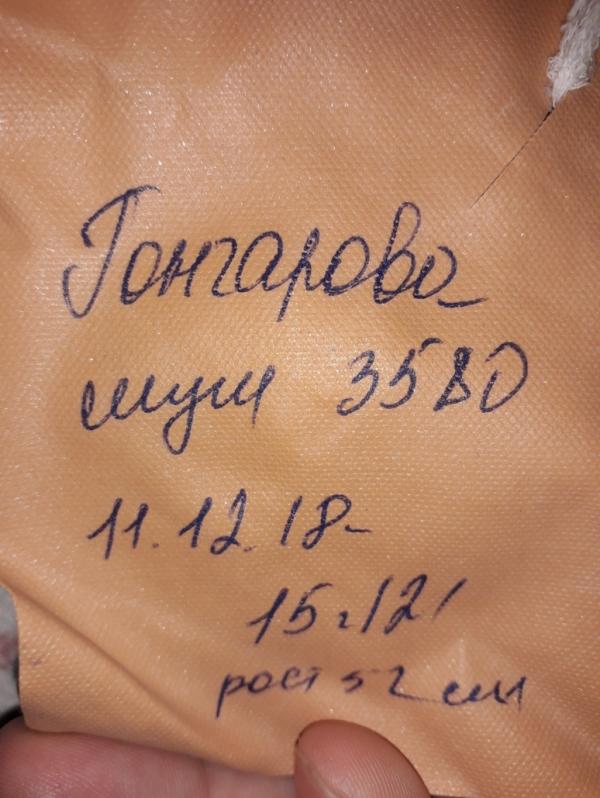 Гончарова
муж 3580
11.12.18-
15 ч 12 /
рост 52 см